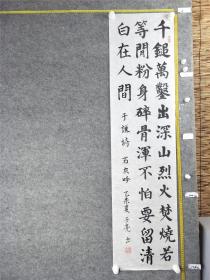 千鎚萬鑿出深山烈火焚燒若
等閒粉身碎骨渾不怕要留清
白在人間 于謙詩 石灰吟 乙未夏